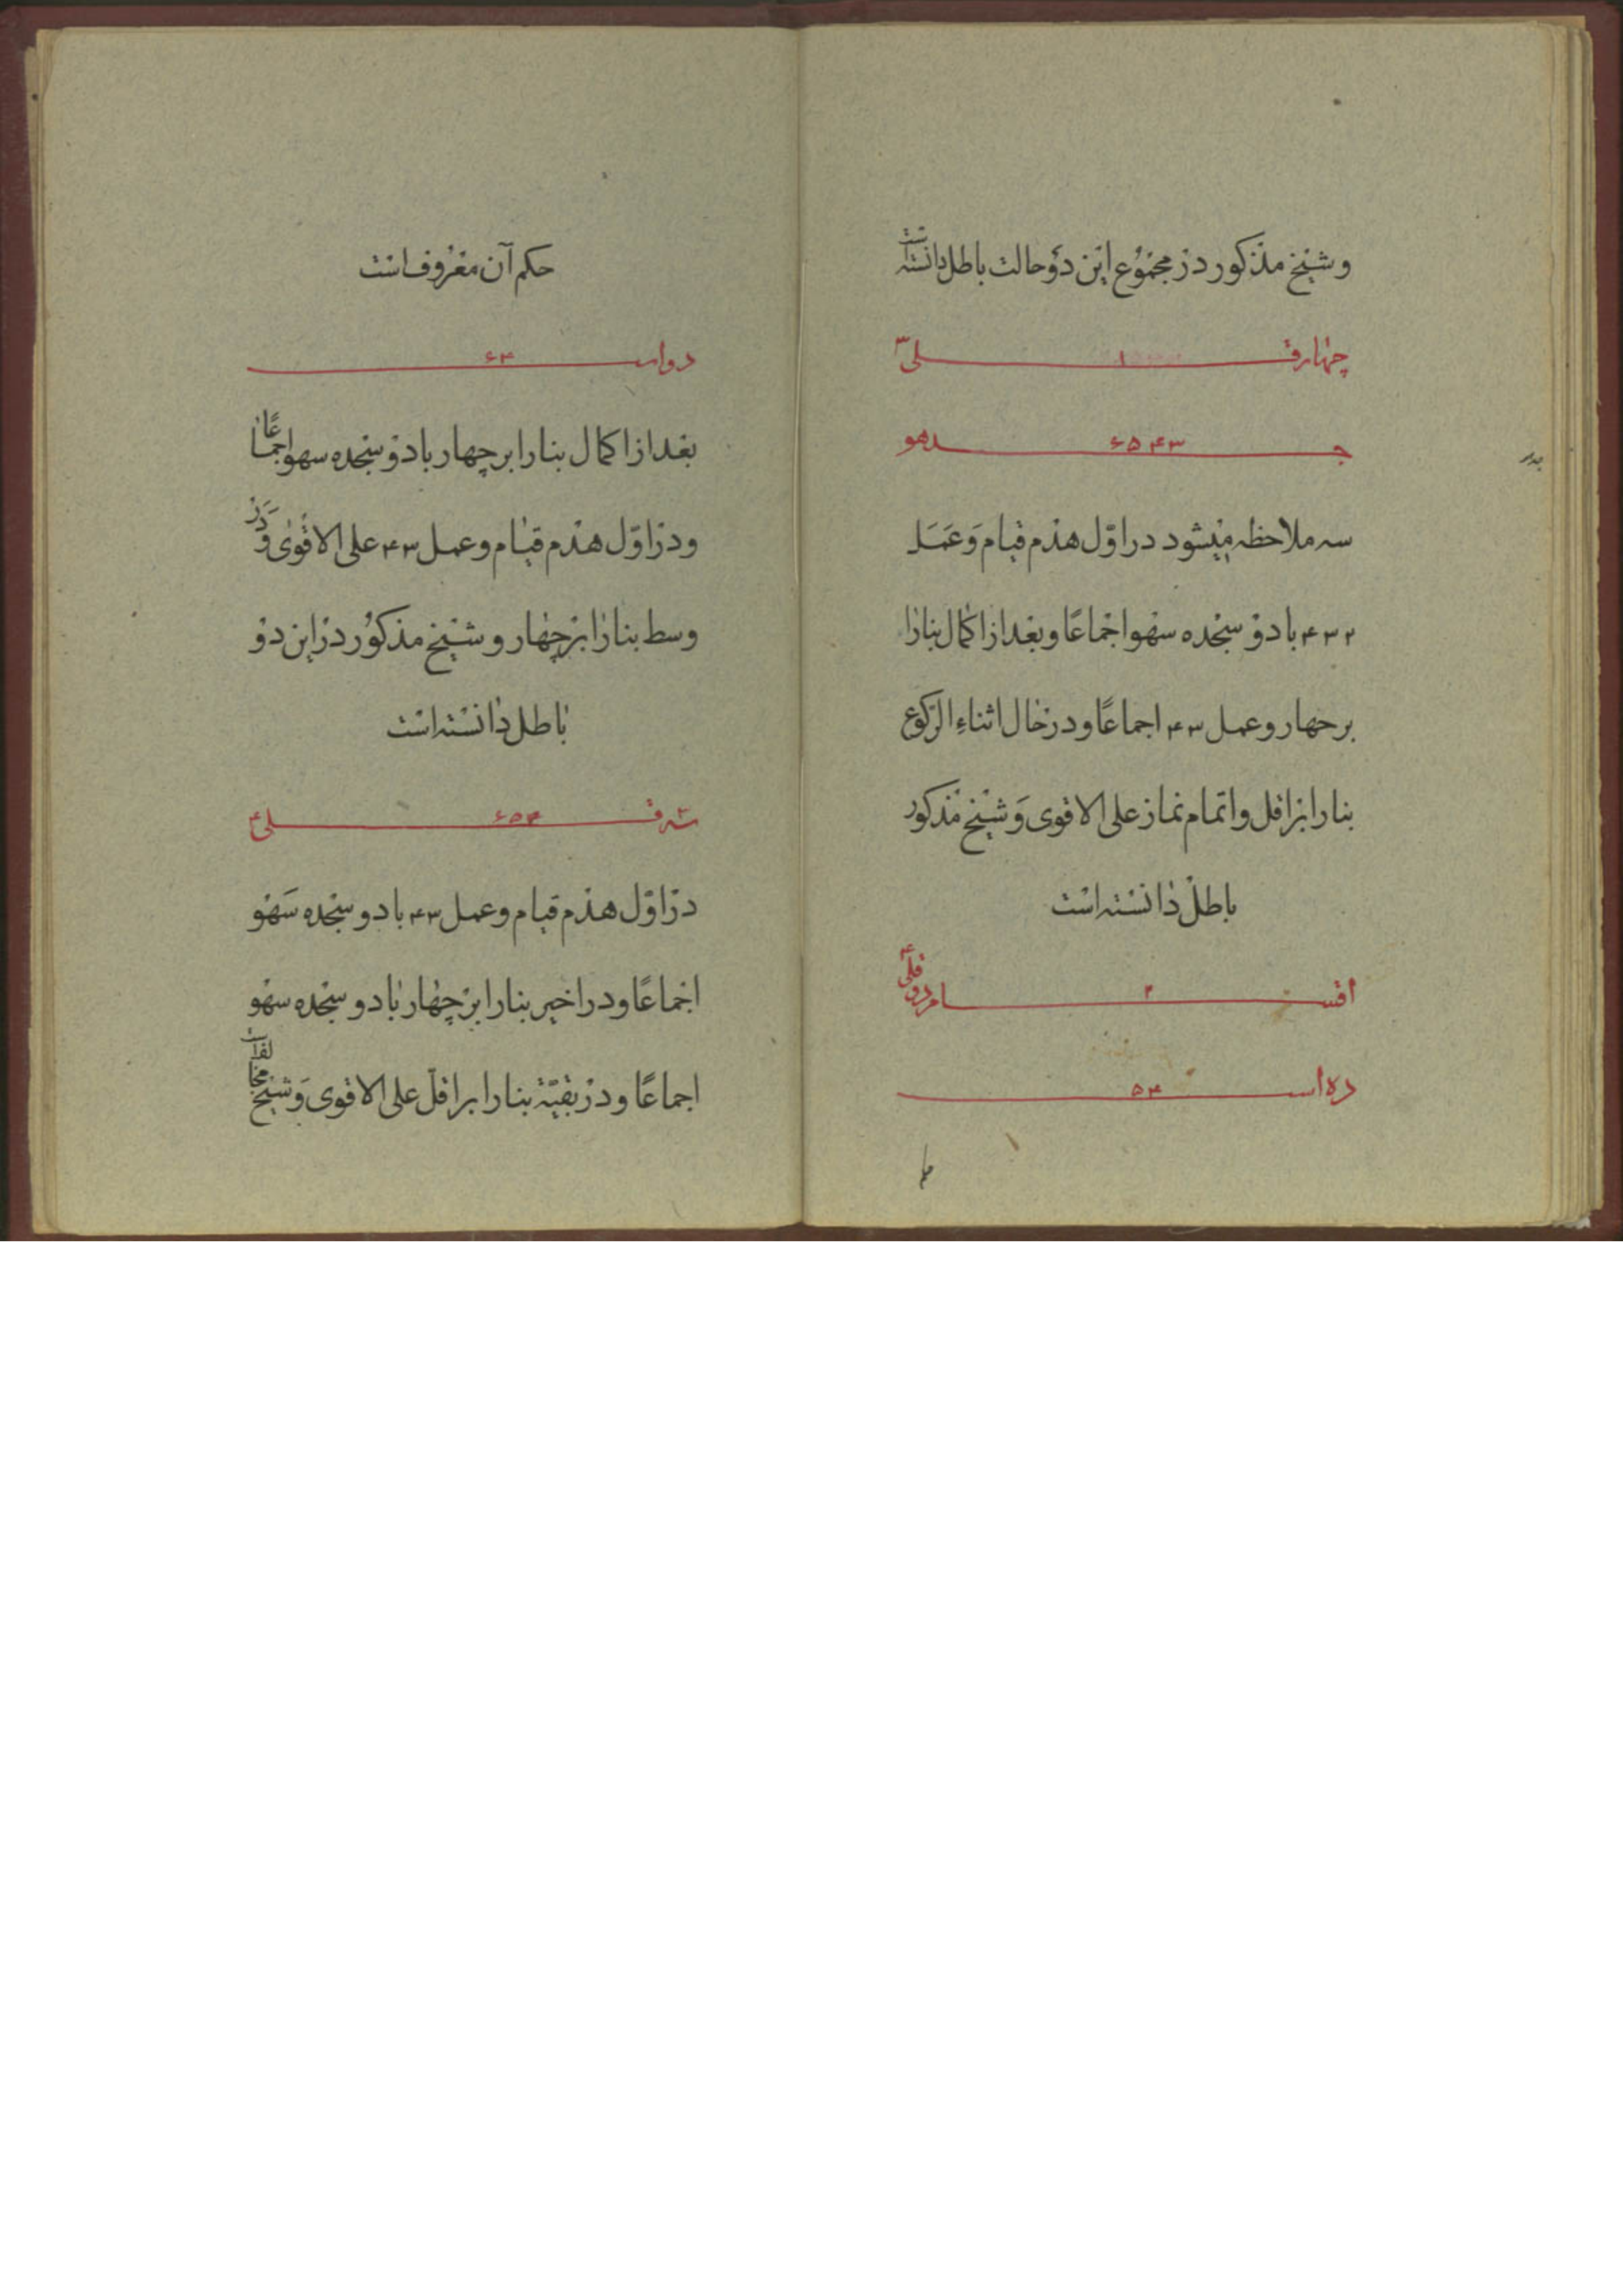 و شیخ مذکور در مجموع این دو حالت باطل دانسته است
چهار قلی ۳
۱
۳ ۴ ۵ ۶
سه ملاحظه میشود در اوّل هدم قیام وَ عَمَل
۲ ۳ ۴ با دو سجده سهو اجماعًا و بعد از اکمال بنا را
بر چهار و عمل ۳ ۴ اجماعًا و در حال اثناءِ الرکوع
بنا را بر اقل و اتمام نماز علی الاقوی وَ شیخ مذکور
باطل دانسته است
اقسام دو قلی ۴
۲
ده اس ۴ ۵
حکم آن معروف است
دواس ۴ ۶
بعد از اکمال بنا را بر چهار با دو سجده سهو اجماعًا
و در اوّل هدم قیام و عمل ۳ ۴ علی الاقوی وَ در
وسط بنا را بر چهار و شیخ مذکور در این دو
باطل دانسته است
سه قلی ۴
۴ ۵ ۶
در اوّل هدم قیام و عمل ۳ ۴ با دو سجده سَهو
اجماعًا و در اخیر بنا را بر چهار با دو سجده سهو
اجماعًا و در بقیّة بنا را بر اقلّ علی الاقوی وَ شیخ مخالف است